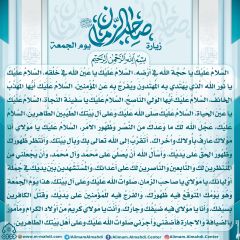 زيارة
صاحب الزمان
يوم الجمعة
بسم الله الرحمن الرحيم
السلام عليك يا حجة الله في أرضه، السلام عليك يا عين الله في خلقه، السلام عليك
يا نور الله الذي يهتدي به المهتدون ويفرج به عن المؤمنين، السلام عليك أيها المهذب
الخائف، السلام عليك أيها الولي الناصح، السلام عليك يا سفينة النجاة، السلام عليك
يا عين الحياة، السلام عليك صلى الله عليك وعلى آل بيتك الطيبين الطاهرين، السلام
عليك، عجل الله لك ما وعدك من النصر وظهور الأمر، السلام عليك يا مولاي، أنا
مولاك عارف بأولاك وأخراك، أتقرب إلى الله تعالى بك وبآل بيتك، وأنتظر ظهورك
وظهور الحق على يديك، وأسأل الله أن يصلي على محمد وآل محمد، وأن يجعلني من
المنتظرين لك والتابعين والناصرين لك على أعدائك، والمستشهدين بين يديك في جملة
أوليائك، يا مولاي يا صاحب الزمان، صلوات الله عليك وعلى آل بيتك، هذا يوم الجمعة
وهو يومك المتوقع فيه ظهورك، والفرج فيه للمؤمنين على يديك، وقتل الكافرين
بسيفك، وأنا يا مولاي فيه ضيفك وجارك، وأنت يا مولاي كريم من أولاد الكرام ومأمور
بالضيافة والإجارة فأضفني وأجرني صلوات الله عليك وعلى أهل بيتك الطاهرين.